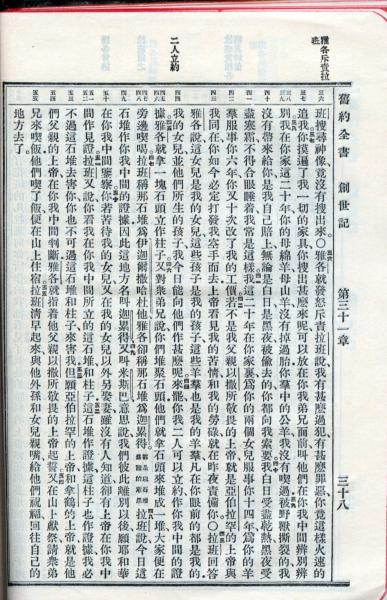 雅各斥責拉
班
二人立約
舊約全書 創世記 第三十一章 三十八
班搜尋神像竟沒有搜出來○雅各就發怒斥責拉班說我有甚麼過犯有甚麼罪惡你竟這樣火速的
追我你摸遍了我一切的家具你搜出甚麼來呢可以放在你我弟兄面前叫他們在你我中間辨別辨
別我在你家這二十年你的母綿羊母山羊沒有掉過胎你羣中的公羊我沒有喫過被野獸撕裂的我
沒有帶來給你是我自己賠上無論是白日是黑夜被偷去的你都向我索要我白日受盡乾熱黑夜受
盡寒霜不得合眼睡着我常是這樣我這二十年在你家裏爲你的兩個女兒服事你十四年爲你的羊
羣服事你六年你又十次改了我的工價若不是我父親以撒所敬畏的上帝就是亞伯拉罕的上帝與
我同在你如今必定打發我空手而去上帝看見我的苦情和我的勞碌就在昨夜責備你○拉班回答
雅各說這女兒是我的女兒這些孩子是我的孩子這些羊羣也是我的羊羣凡在你眼前的都是我的
我的女兒並他們所生的孩子我今日能向他們作甚麼呢來罷你我二人可以立約作你我中間的證
據雅各就拿一塊石頭立作柱子又對衆弟兄說你們堆聚石頭他們就拿石頭來堆成一堆大家便在
旁邊喫喝拉班稱那石堆爲伊迦爾撒哈杜他雅各卻稱那石堆爲迦累得拉班說今日這
石堆作你我中間的證據因此這地方名叫迦累得又叫米斯巴意思說我們彼此離別以後願耶和華
在你我中間鑒察你若苦待我的女兒又在我的女兒以外另娶妻雖沒有人知道卻有上帝在你我中
間作見證拉班又說你看我在你我中間所立的這石堆和柱子這石堆作證據這柱子也作證據我必
不過這石堆去害你你也不可過這石堆和柱子來害我但願亞伯拉罕的上帝和拿鶴的上帝就是他
們父親的上帝在你我中間判斷雅各就指着他父親以撒所敬畏的上帝起誓又在山上獻祭請衆弟
兄來喫飯他們喫了飯便在山上住宿拉班清早起來與他外孫和女兒親嘴給他們祝福回往自己的
地方去了